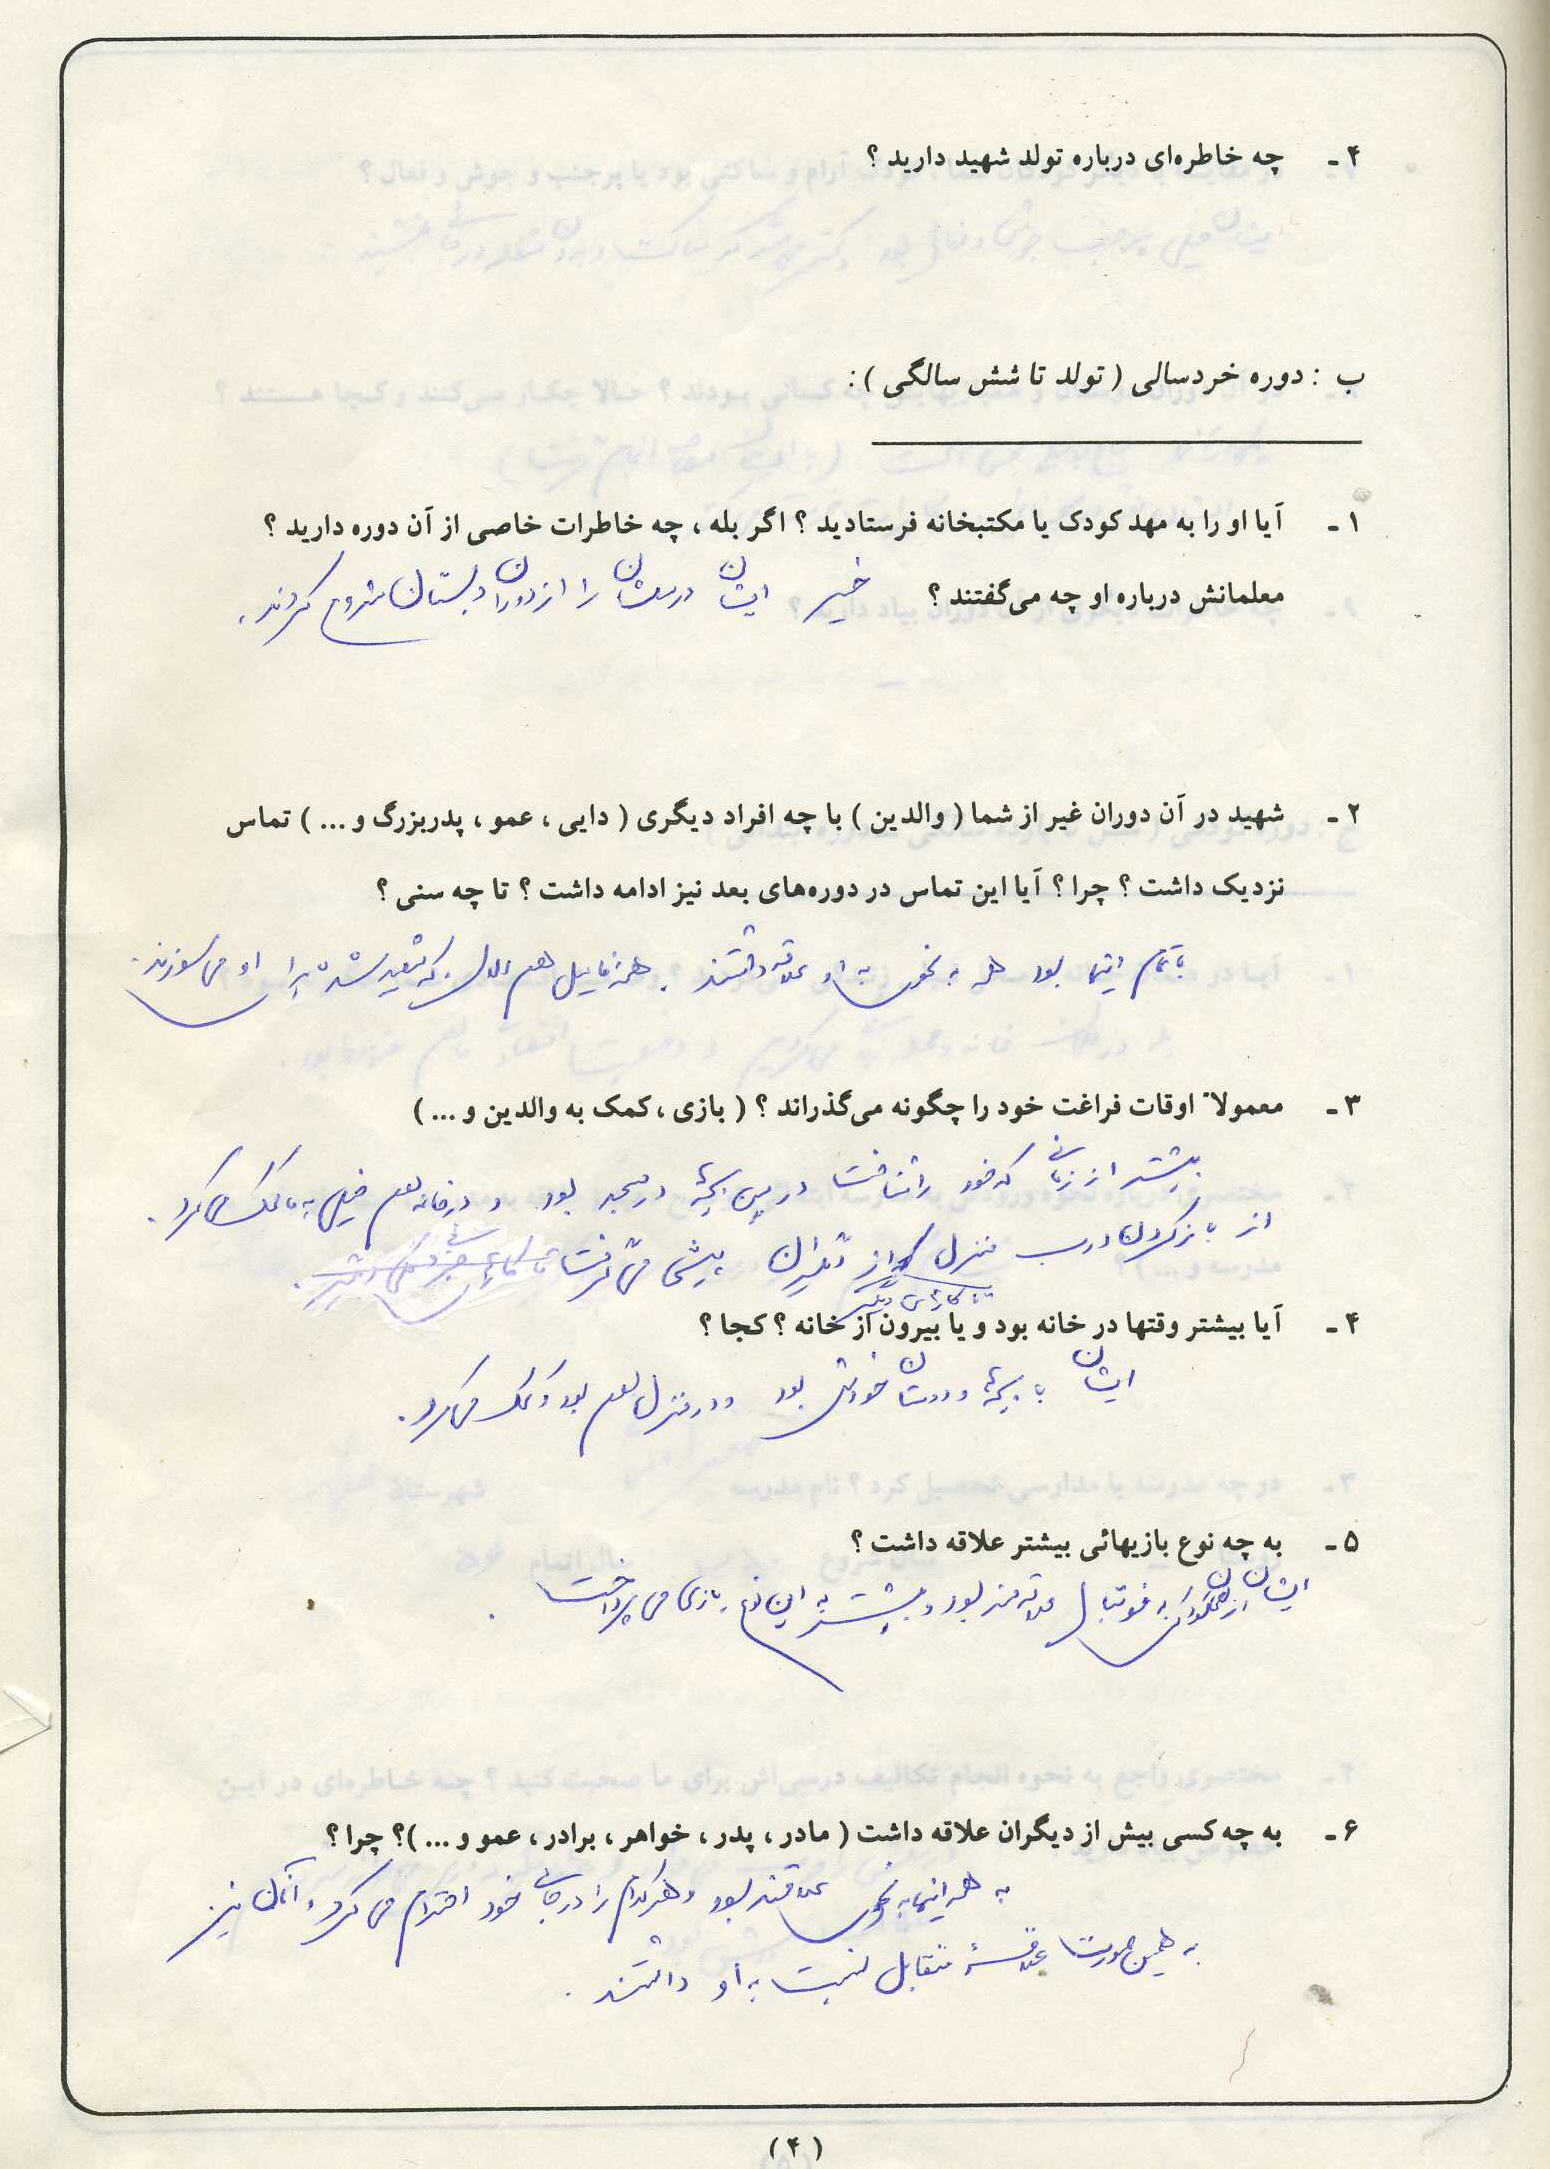 ۴ - چه خاطره‌ای درباره تولد شهید دارید ؟
ب : دوره خردسالی ( تولد تا شش سالگی ) :
۱ - آیا او را به مهد کودک یا مکتبخانه فرستادید ؟ اگر بله ، چه خاطرات خاصی از آن دوره دارید ؟
معلمانش درباره او چه می‌گفتند ؟ خیر ایشان درسشان را از دوران دبستان شروع کردند .
۲ - شهید در آن دوران غیر از شما ( والدین ) با چه افراد دیگری ( دایی ، عمو ، پدربزرگ و ... ) تماس
نزدیک داشت ؟ چرا ؟ آیا این تماس در دوره‌های بعد نیز ادامه داشت ؟ تا چه سنی ؟
با تمام اینها بود همه به نحوی به او علاقه داشتند . همه فامیل هم الان که شهید شده برای او می سوزند .
۳ - معمولاً اوقات فراغت خود را چگونه می‌گذراند ؟ ( بازی ، کمک به والدین و ... )
بیشتر از زمانی که خود را شناخت در بین بچه‌ها در مسجد بود و در خانه هم خیلی به ما کمک می کرد .
از باز کردن درب منزل که از دیگران پیشی می گرفت
تا کارهای دیگر
۴ - آیا بیشتر وقتها در خانه بود و یا بیرون از خانه ؟ کجا ؟
ایشان با بچه‌ها و دوستان خودش بود و در منزل هم بود و کمک می کرد .
۵ - به چه نوع بازیهائی بیشتر علاقه داشت ؟
ایشان از همان کودکی به فوتبال علاقه مند بود و بیشتر به این نوع بازی می پرداخت .
۶ - به چه کسی بیش از دیگران علاقه داشت ( مادر ، پدر ، خواهر ، برادر ، عمو و ... )؟ چرا ؟
به همه اینها به نحوی علاقمند بود و هر کدام را در جای خود احترام می کرد و آنان نیز
به همین صورت علاقه متقابل نسبت به او داشتند .
( ۴ )